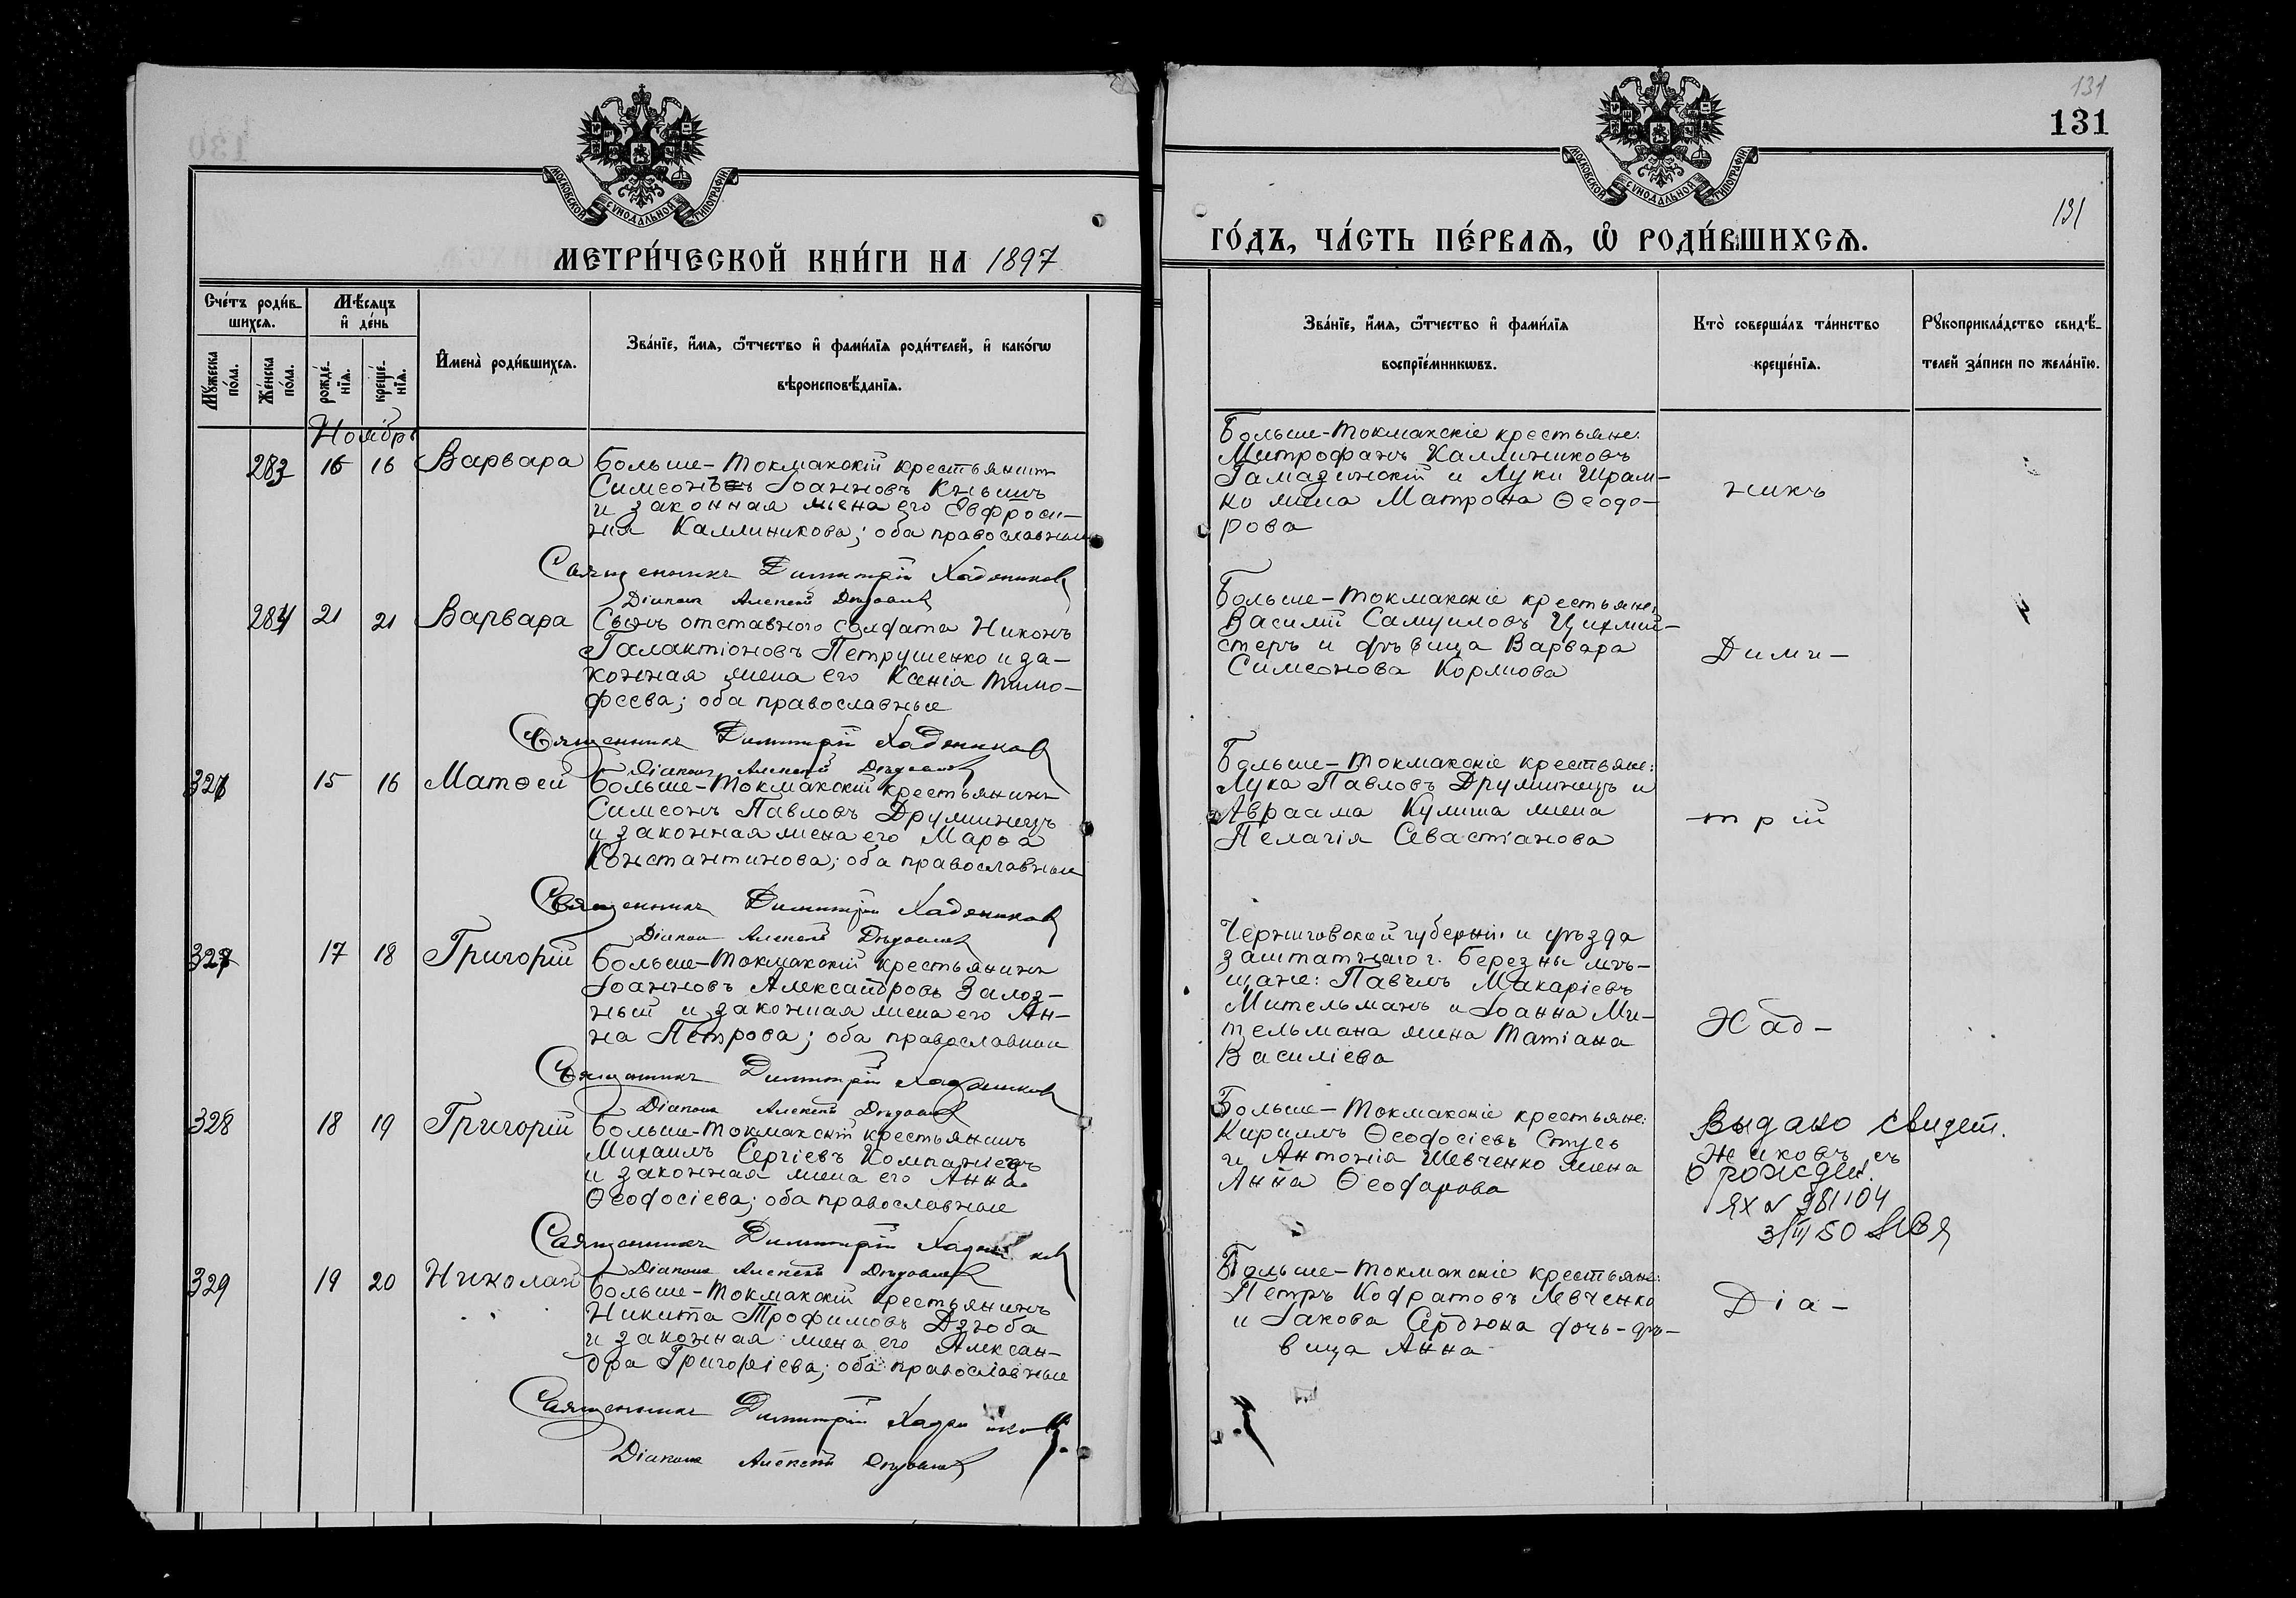 130
МОСКОВСКОЙ СѴНОДАЛЬНОЙ ТИПОГРАФІИ
МЕТРИ́ЧЕСКОЙ КНИ́ГИ НА 1897
Сче́тъ роди́в-
шихсѧ.
Мѣ́сяцъ
и҆ де́нь
Мꙋ́жеска
по́ла.
Же́нска
по́ла.
рожде́-
нїѧ.
креще́-
нїѧ.
И҆мена̀ роди́вшихсѧ.
Зва́нїе, и҆́мѧ, ѻ҆́тчество и҆ фами́лїѧ роди́телей, и҆ како́гѡ
вѣроисповѣ́данїѧ.
Ноябрь
283 16 16 Варвара Больше-Токмакскій крестьянинъ
Симеонъ Іоанновъ Кнышъ
и законная жена его Евфроси-
нія Каллиникова; оба православные
Священникъ Димитрій Хадживиковъ
Діаконъ Алексей
284 21 21 Варвара Сынъ отставного солдата Никонъ
Галактіоновъ Петрушенко и за-
конная жена его Ксенія Тимо-
феева; оба православные
Священникъ Димитрій
Діаконъ Алексей
326 15 16 Матѳей Больше-Токмакскій крестьянинъ
Симеонъ Павловъ
и законная жена его Марѳа
Константинова; оба православные
Священникъ Димитрій
Діаконъ Алексей
327 17 18 Григорій Больше-Токмакскій крестьянинъ
Іоанновъ Александровъ Залоз-
ный и законная жена его Ан-
на Петрова; оба православные
Священникъ Димитрій
Діаконъ Алексей
328 18 19 Григорій Больше-Токмакскій крестьянинъ
Михаилъ Сергіевъ Компаніецъ
и законная жена его Анна
Ѳеодосіева; оба православные
Священникъ Димитрій
Діаконъ Алексей
329 19 20 Николай Больше-Токмакскій крестьянинъ
Никита Трофимовъ Дзюба
и законная жена его Алексан-
дра Григоріева; оба православные
Священникъ Димитрій
Діаконъ Алексей
131
131
МОСКОВСКОЙ СѴНОДАЛЬНОЙ ТИПОГРАФІИ
131
ГО́ДЪ, ЧА́СТЬ ПЕ́РВАѦ, Ѡ҆ РОДИ́ВШИХСѦ.
Зва́нїе, и҆́мѧ, ѻ҆́тчество и҆ фами́лїѧ
воспрїе́мникѡвъ.
Кто̀ соверша́лъ та́инство
креще́нїѧ.
Рꙋкоприкла́дство свидѣ́-
телей за́писи по жела́нїю.
Больше-Токмакскіе крестьяне:
Митрофанъ Каллиниковъ
Гамазинскій и Луки Шрам-
ко жена Матрона Ѳеодо-
рова
никъ
Больше-Токмакскіе крестьяне:
Василій Самуиловъ Цихмей-
стеръ и дѣвица Варвара
Симеонова Кормова
Дими-
Больше-Токмакскіе крестьяне:
Лука Павловъ и
Авраама Кулиша жена
Пелагія Севастіанова
трій
Черниговской губерніи и уѣзда
заштатнаго г. Березны мѣ-
щане: Павелъ Макаріевъ
Мительманъ и Іоанна Ми-
тельмана жена Татіана
Василіева
Хад-
Больше-Токмакскіе крестьяне:
Кириллъ Ѳеодосіевъ Стусь
и Антонія Шевченко жена
Анна Ѳеодорова
Выдано свидет.
жиковъ съ
о рожден.
ЯХ № 981104
3/II 50
Больше-Токмакскіе крестьяне:
Петръ Кодратовъ Левченко
и Іакова Сердюка дочь-дѣ-
вица Анна
Діа-